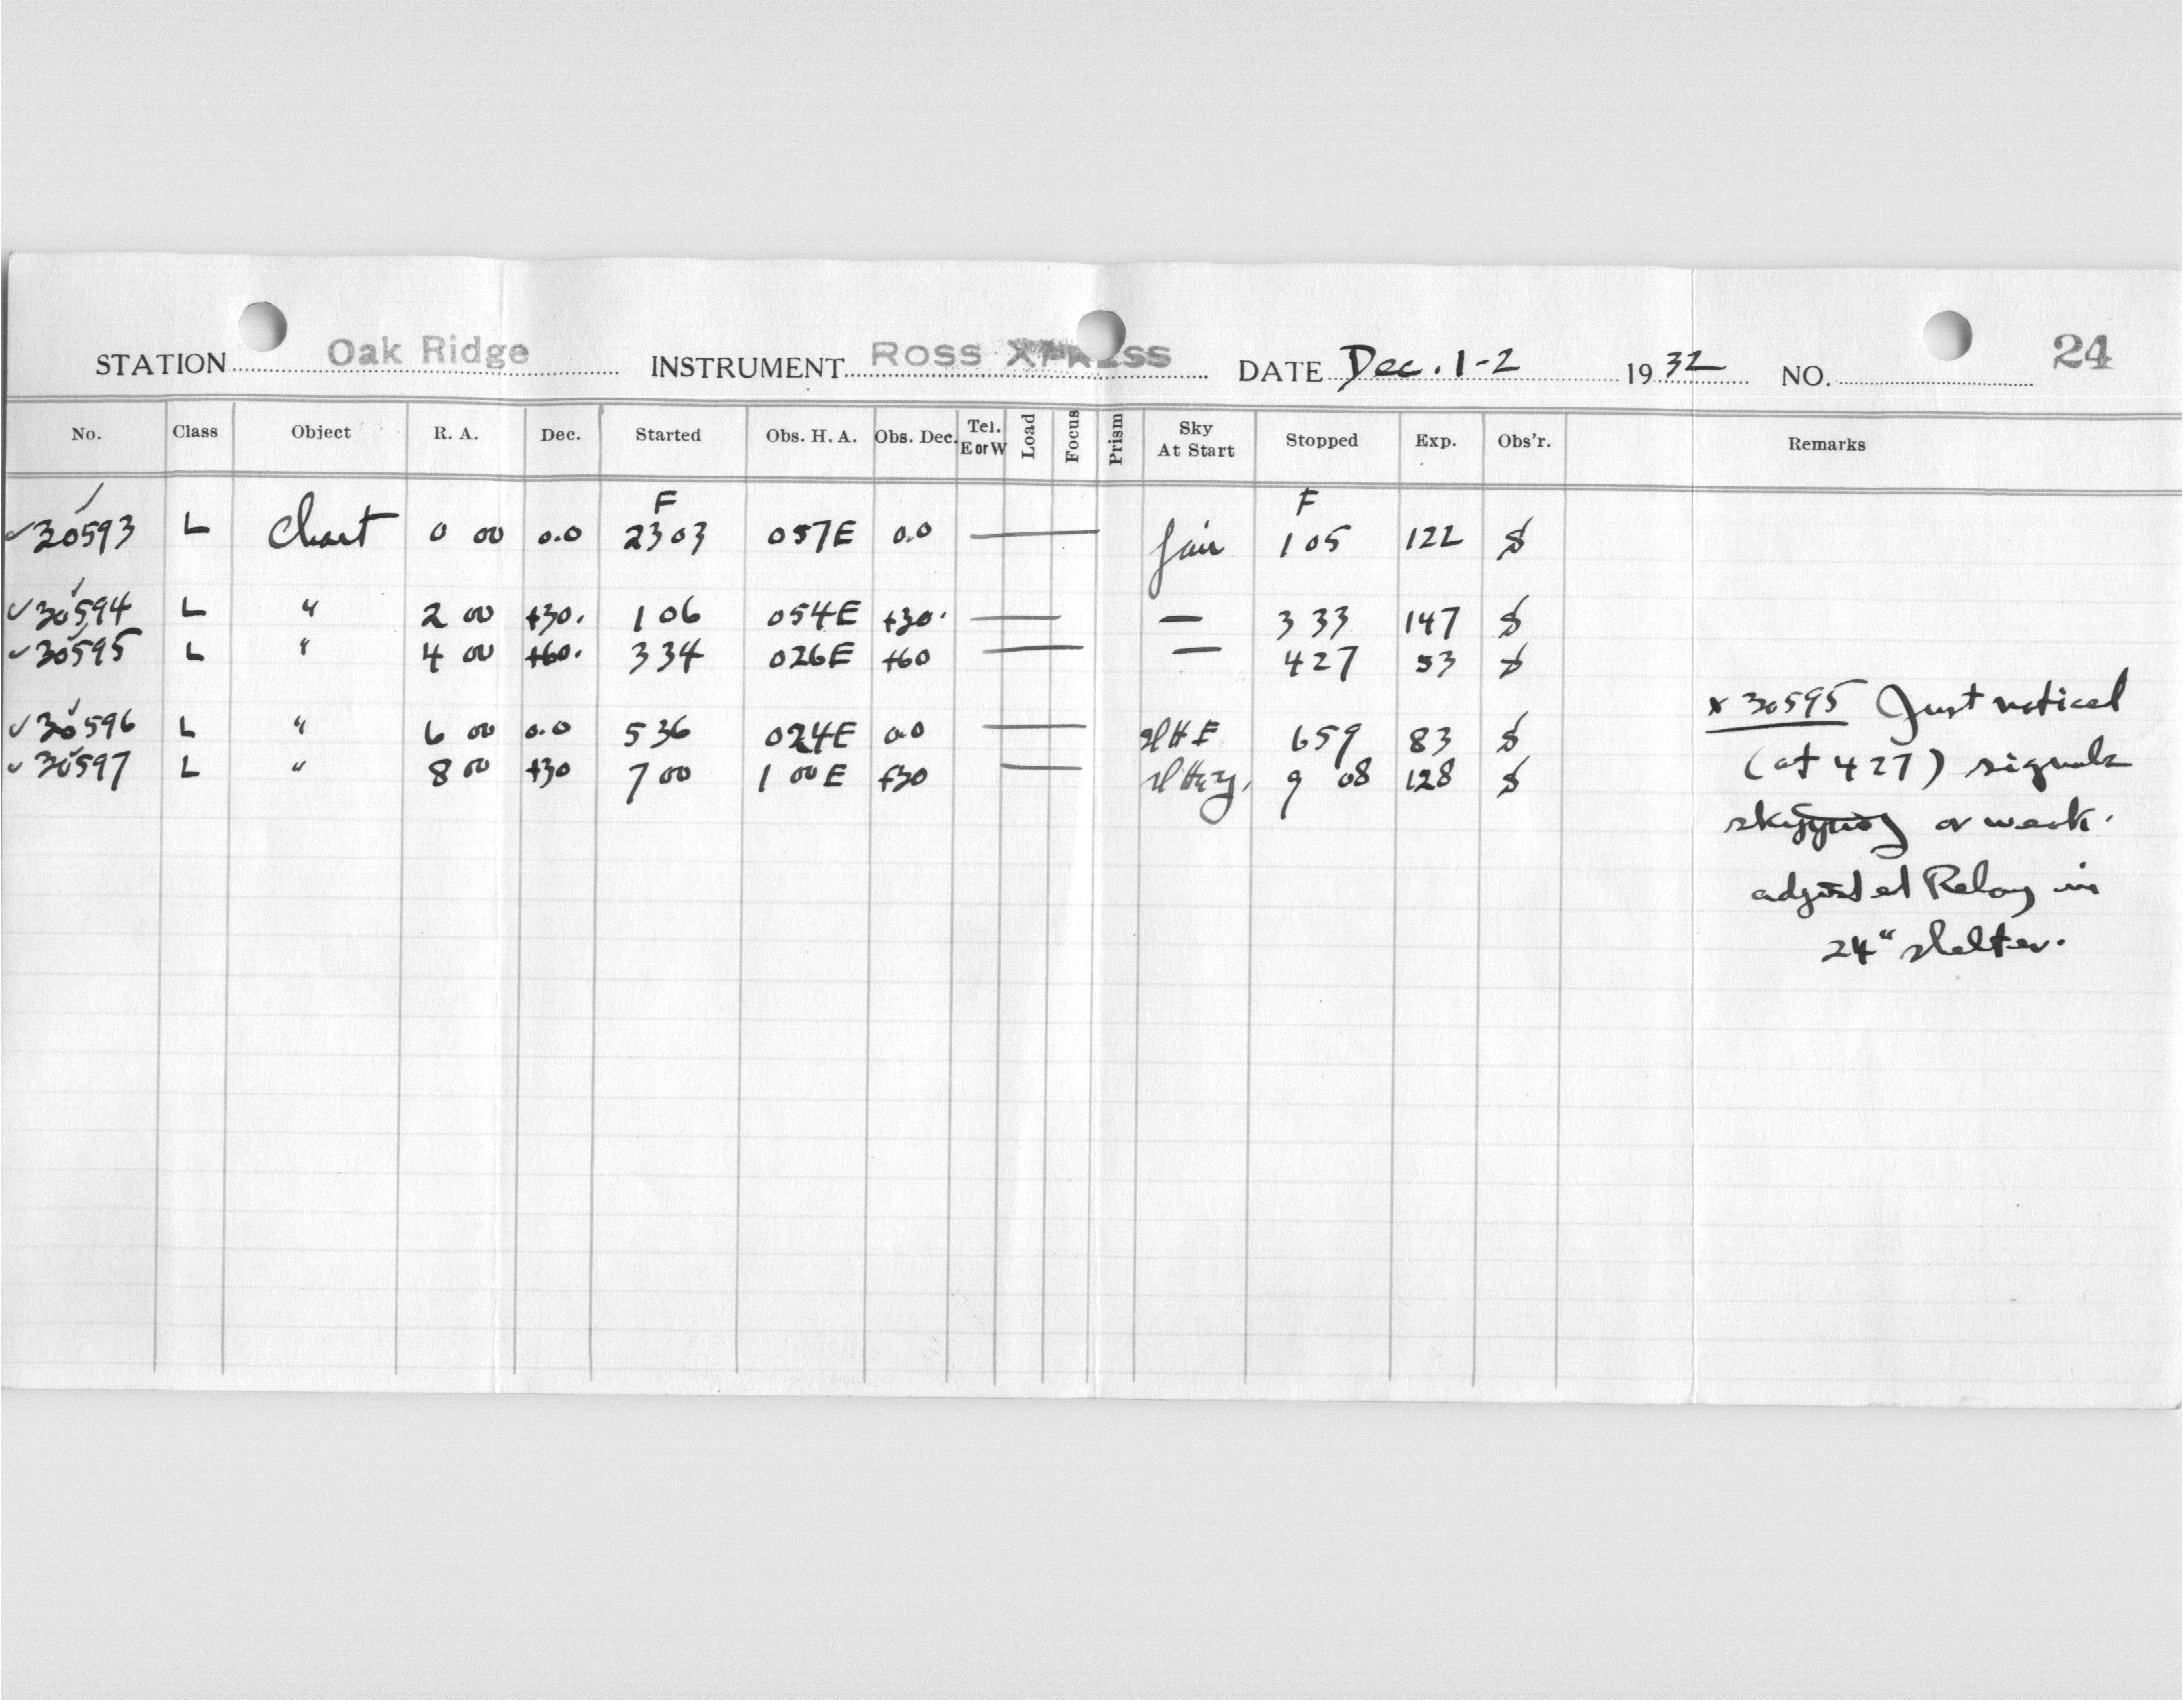 STATION Oak Ridge INSTRUMENT Ross Xpress DATE Dec. 1-2 1932 NO. 24
No. Class Object R. A. Dec. Started Obs. H. A. Obs. Dec. Tel. E or W Load Focus Prism Sky At Start Stopped Exp. Obs'r. Remarks
F F
30593 L Chart 0 00 0.0 2303 057E 0.0 — fair 1 05 122 S
30594 L " 2 00 +30. 1 06 054E +30. — — 3 33 147 S
30595 L " 4 00 +60. 3 34 026E +60 — — 4 27 53 S
30596 L " 6 00 0.0 5 36 024E 0.0 — 6 59 83 S
30597 L " 8 00 +30 7 00 1 00 E +30 — 9 08 128 S
x 30595 Just noticed
(at 427) signals
or weak.
adjusted Relay in
24" shelter.